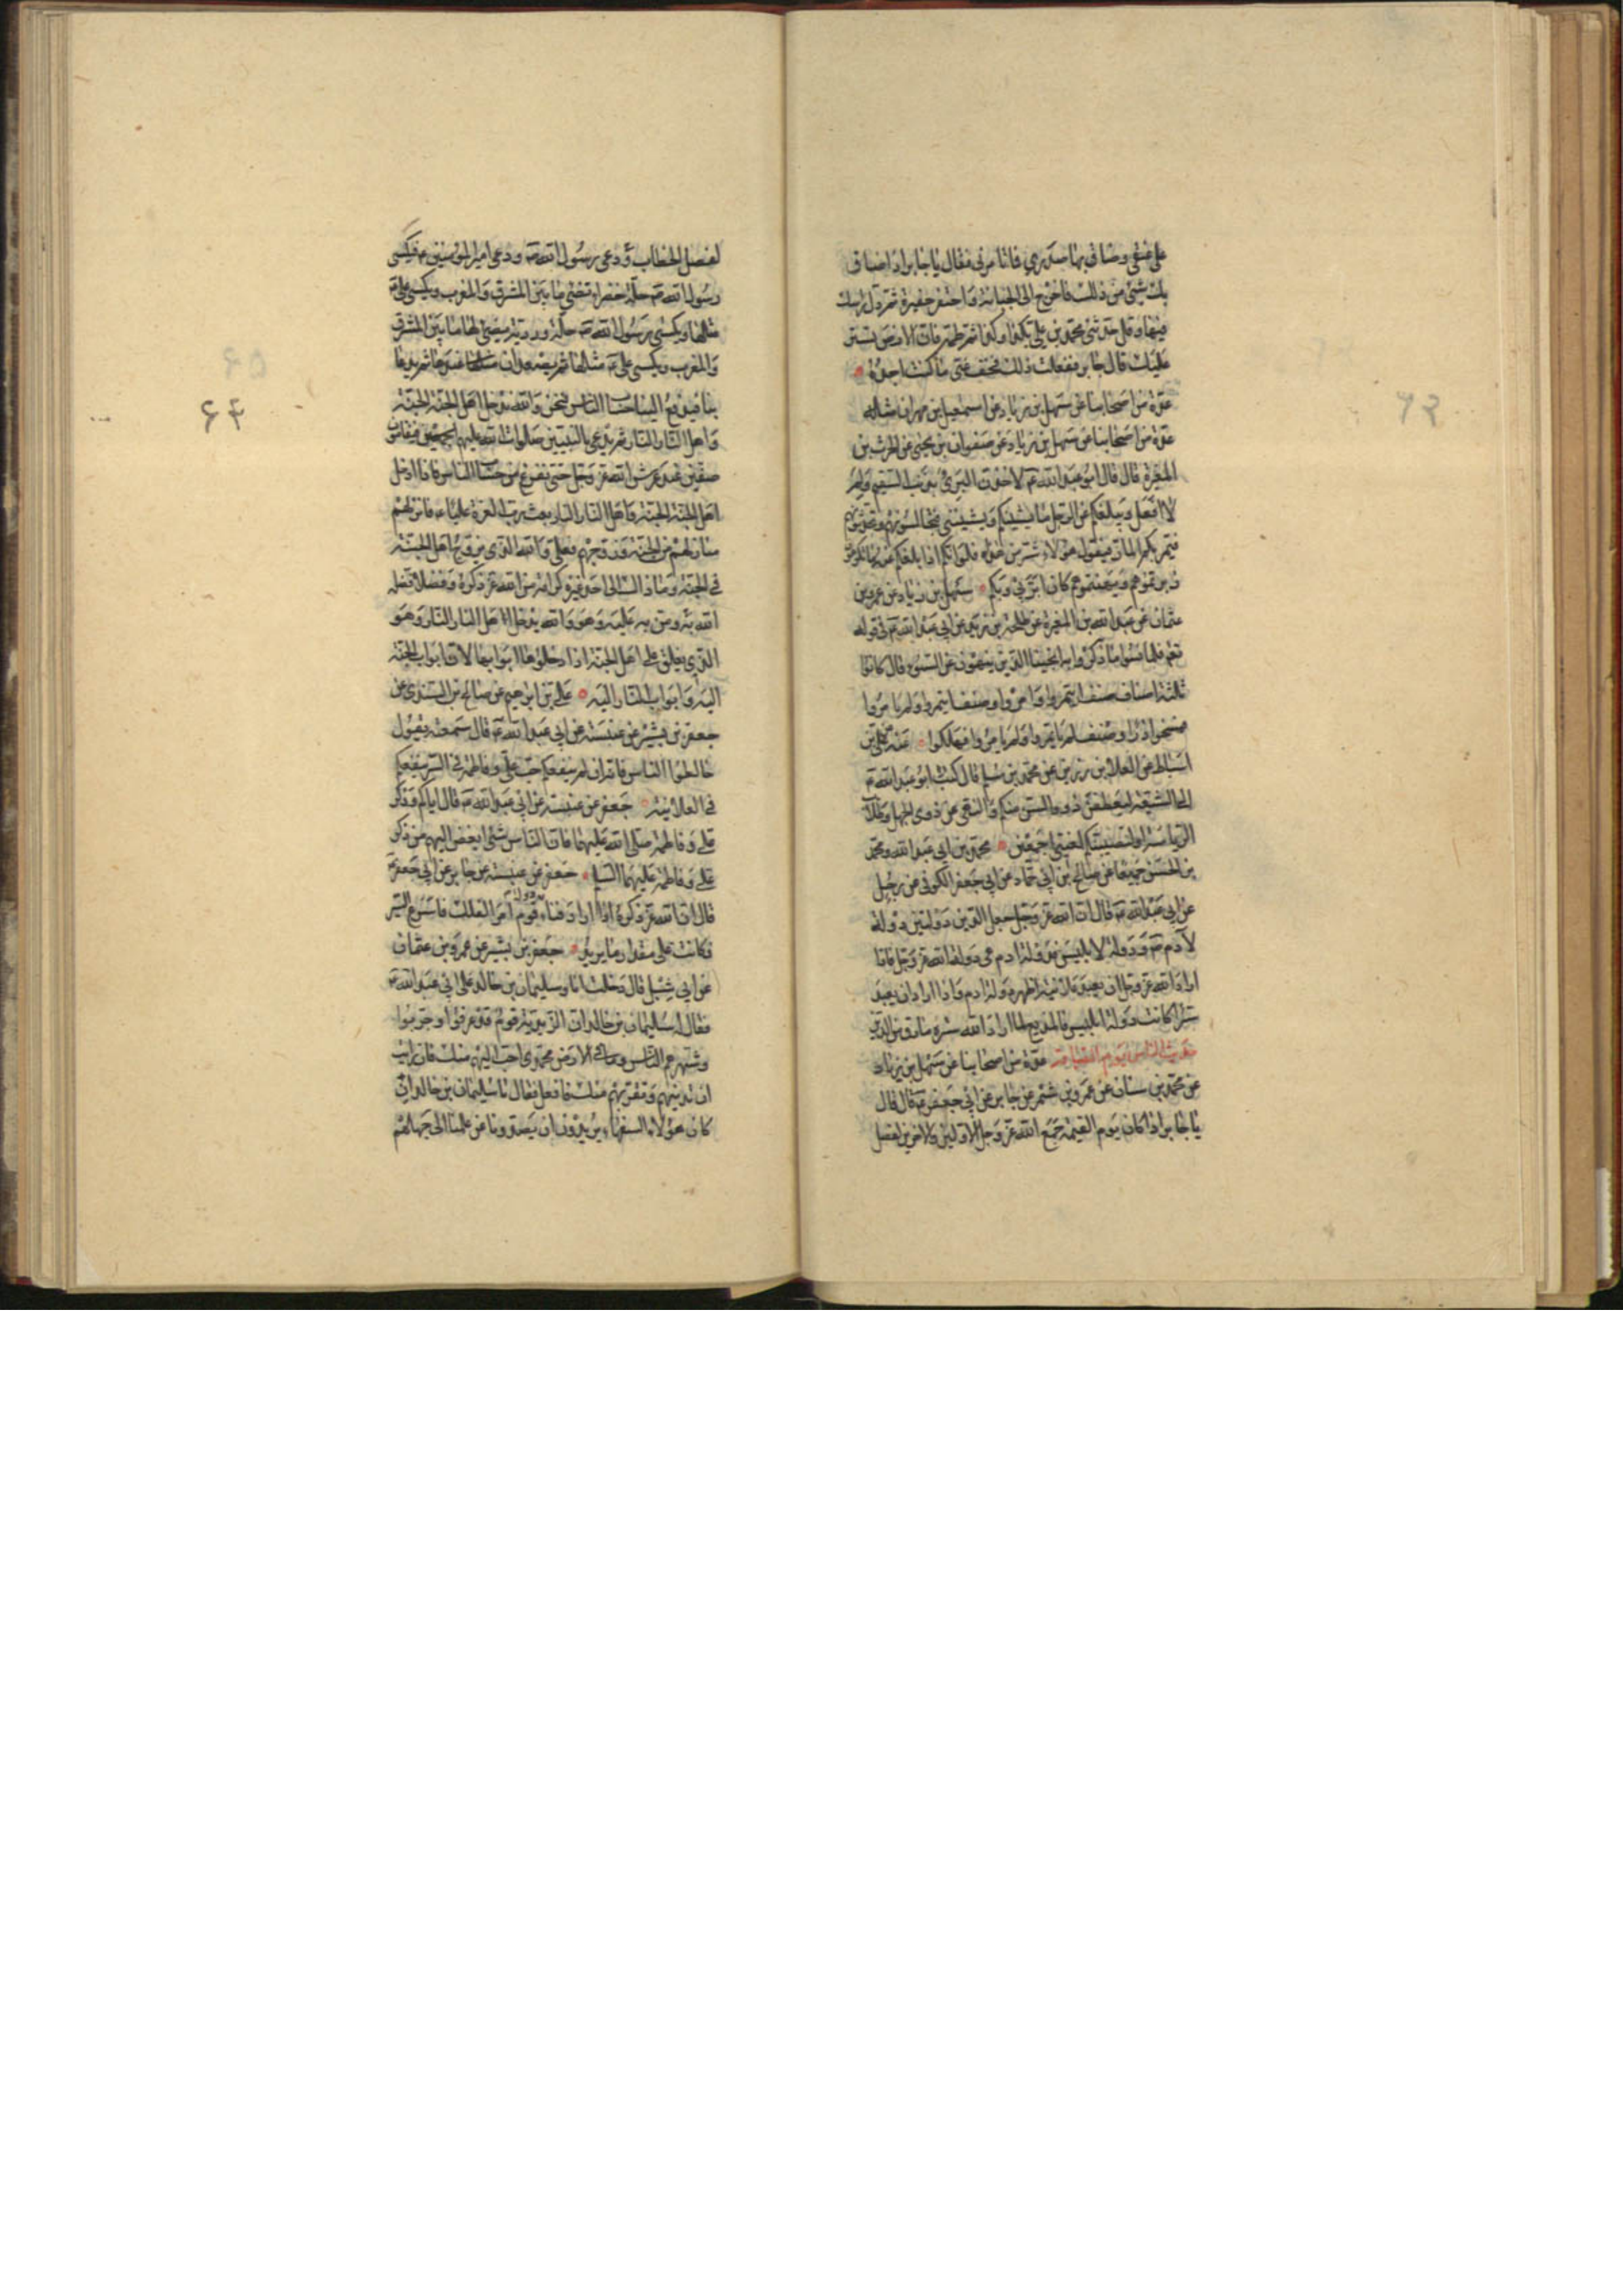 على عنقي وضاق بها صدري فاتامرني فقال يا جابر اذا ضاق
بك شيئ من ذلك فاخرج الى الجبانة واحتفر حفيرة ثم دل راسك
فيها وقل حدثني محمد بن علي بكذا وكذا ثم طمه فان الارض تستر
عليك قال جابر ففعلت ذلك فخف عني ما كنت اجده
عدة من اصحابنا عن سهل بن زياد عن اسمعيل بن مهران مثله
عدة من اصحابنا عن سهل بن زياد عن صفوان بن يحيى عن الحرث بن
المغيرة قال قال ابو عبد الله ع لاخذن البريء بذنب السقيم ولم
لا افعل ويبلغكم عن الرجل ما يشينكم ويشينني فتجالسونهم وتحدثونهم
فيمر بكم المار فيقول هؤلاء شر من هذا فلو انكم اذا بلغكم عنه ما تكرهون
زبرتموهم ونهيتموهم كان ابر بي وبكم سهل بن زياد عن عمرو بن
عثمان عن عبد الله بن المغيرة عن طلحة بن زيد عن ابي عبد الله ع في قوله
تعم فلما نسوا ما ذكروا به انجينا الذين ينهون عن السوء قال كانوا
ثلثة اصناف صنف ائتمروا وامروا وصنف ائتمروا ولم يامروا
فمسخوا ذرا وصنف لم ياتمروا ولم يامروا فهلكوا عنه عن علي بن
اسباط عن العلاء بن رزين عن محمد بن مسلم قال كتب ابو عبد الله ع
الى الشيعة ليعطفن ذووا السن منكم والنهى عن ذوى الجهل وطلاب
الرياسة او لتصيبنكم لعنتي اجمعين محمد بن ابي عبد الله ومحمد
بن الحسن جميعا عن صالح بن ابي حماد عن ابي جعفر الكوفي عن رجل
عن ابي عبد الله ع قال ان الله عز وجل جعل الدين دولتين دولة
لآدم ع ودولة لابليس فدولة ادم هى دولة الله عز وجل فاذا
اراد الله عز وجل ان يعبد علانية اظهر دولة ادم واذا اراد ان يعبد
سرا كانت دولة ابليس فالمذيع لما اراد الله ستره مارق من الدين
حديث الناس يوم القيامة عدة من اصحابنا عن سهل بن زياد
عن محمد بن سنان عن عمرو بن شمر عن جابر عن ابي جعفر ع قال قال
يا جابر اذا كان يوم القيمة جمع الله عز وجل الاولين والاخرين لفصل
لفصل الخطاب ودعى رسول الله ص ودعى امير المؤمنين ع فيكسى
رسول الله ص حلة خضراء تضئ ما بين المشرق والمغرب ويكسى علي ع
مثلها ويكسى رسول الله ص حلة وردية يضئ لها ما بين المشرق
والمغرب ويكسى علي ع مثلها ثم يصعدان عندها ثم يدعا
بنا فيدفع الينا حساب الناس فنحن والله ندخل اهل الجنة الجنة
واهل النار النار ثم يدعى بالنبيين صلوات الله عليهم اجمعين فيقامون
صفين عند عرش الله عز وجل حتى نفرغ من حساب الناس فاذا ادخل
اهل الجنة الجنة واهل النار النار بعث رب العزة عليا ع فانزلهم
منازلهم من الجنة وزوجهم فعلى والله الذى يزوج اهل الجنة
في الجنة وما ذاك الى احد غيره كرامة من الله عز ذكره وفضلا فضله
الله به ومن به عليه وهو والله يدخل اهل النار النار وهو
الذى يغلق على اهل الجنة اذا دخلوها ابوابها لان ابواب الجنة
اليه وابواب النار اليه علي بن ابرهيم عن صالح بن السندى عن
جعفر بن بشير عن عنبسة عن ابي عبد الله ع قال سمعته يقول
خالطوا الناس فانه ان لم ينفعكم حب علي وفاطمة في السر لم ينفعكم
في العلانية جعفر عن عنبسة عن ابي عبد الله ع قال اياكم وذكر
علي وفاطمة صلى الله عليهما فان الناس ليس شئ ابغض اليهم من ذكر
علي وفاطمة عليهما السلم جعفر عن عنبسة عن جابر عن ابي جعفر ع
قال ان الله عز ذكره اذا اراد فناء دولة قوم امر الفلك فاسرع السير
فكانت على مقدار ما يريد جعفر بن بشير عن عمرو بن عثمان
عن ابي شبل قال دخلت انا وسليمان بن خالد على ابي عبد الله ع
فقال له سليمان بن خالد ان الزيدية قوم قد عرفوا وجربوا
وشهرهم الناس وما في الارض محمدى احب اليهم منك فان رايت
ان تدنيهم وتقربهم منك فافعل فقال يا سليمان بن خالد ان
كان هؤلاء السفهاء يريدون ان يصدونا عن علمنا الى جهلهم
۶۳
۶۴